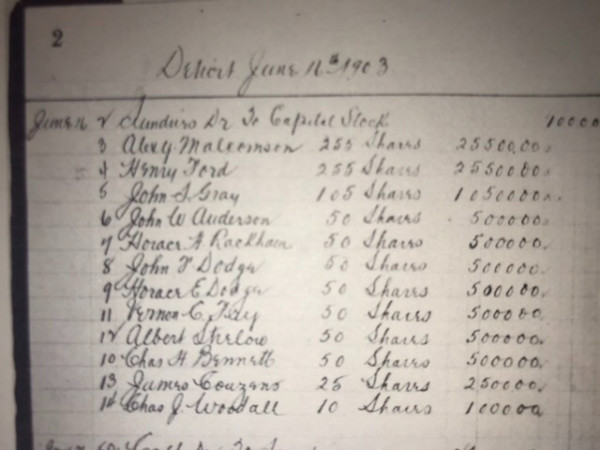 2
Detroit June 16th 1903
June 16 2 Sundries Dr To Capital Stock 10000
3 Alex Y. Malcomson 255 Shares 25500.00
4 Henry Ford 255 Shares 2550000
5 John S Gray 105 Shares 1050000
6 John W Anderson 50 Shares 500000
7 Horace H Rackham 50 Shares 500000
8 John F Dodge 50 Shares 500000
9 Horace E Dodge 50 Shares 500000
11 Vernon C. Fry 50 Shares 500000
12 Albert Strelow 50 Shares 500000
10 Chas H Bennett 50 Shares 500000
13 James Couzens 25 Shares 250000
14 Chas J. Woodall 10 Shares 100000